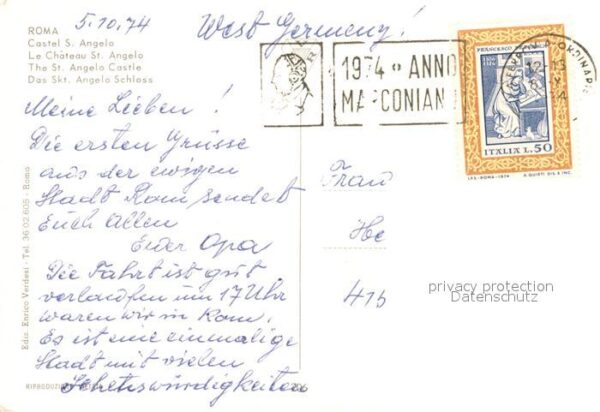 5.10.74
West Germany!
ROMA
Castel S. Angelo
Le Château St. Angelo
The St. Angelo Castle
Das Skt. Angelo Schloss
1974 · ANNO
MARCONIANO
FRANCESCO
ITALIA L.50
I.P.S.-ROMA-1974
Meine Lieben!
Die ersten Grüsse
aus der ewigen
Stadt Rom sendet
Euch allen
Euer Opa
Die Fahrt ist gut
verlaufen um 17 Uhr
waren wir in Rom.
Es ist eine einmalige
Stadt mit vielen
Sehenswürdigkeiten
Frau
He
415
privacy protection
Datenschutz
Ediz. Enrico Verdesi - Tel. 36.02.605 - Roma